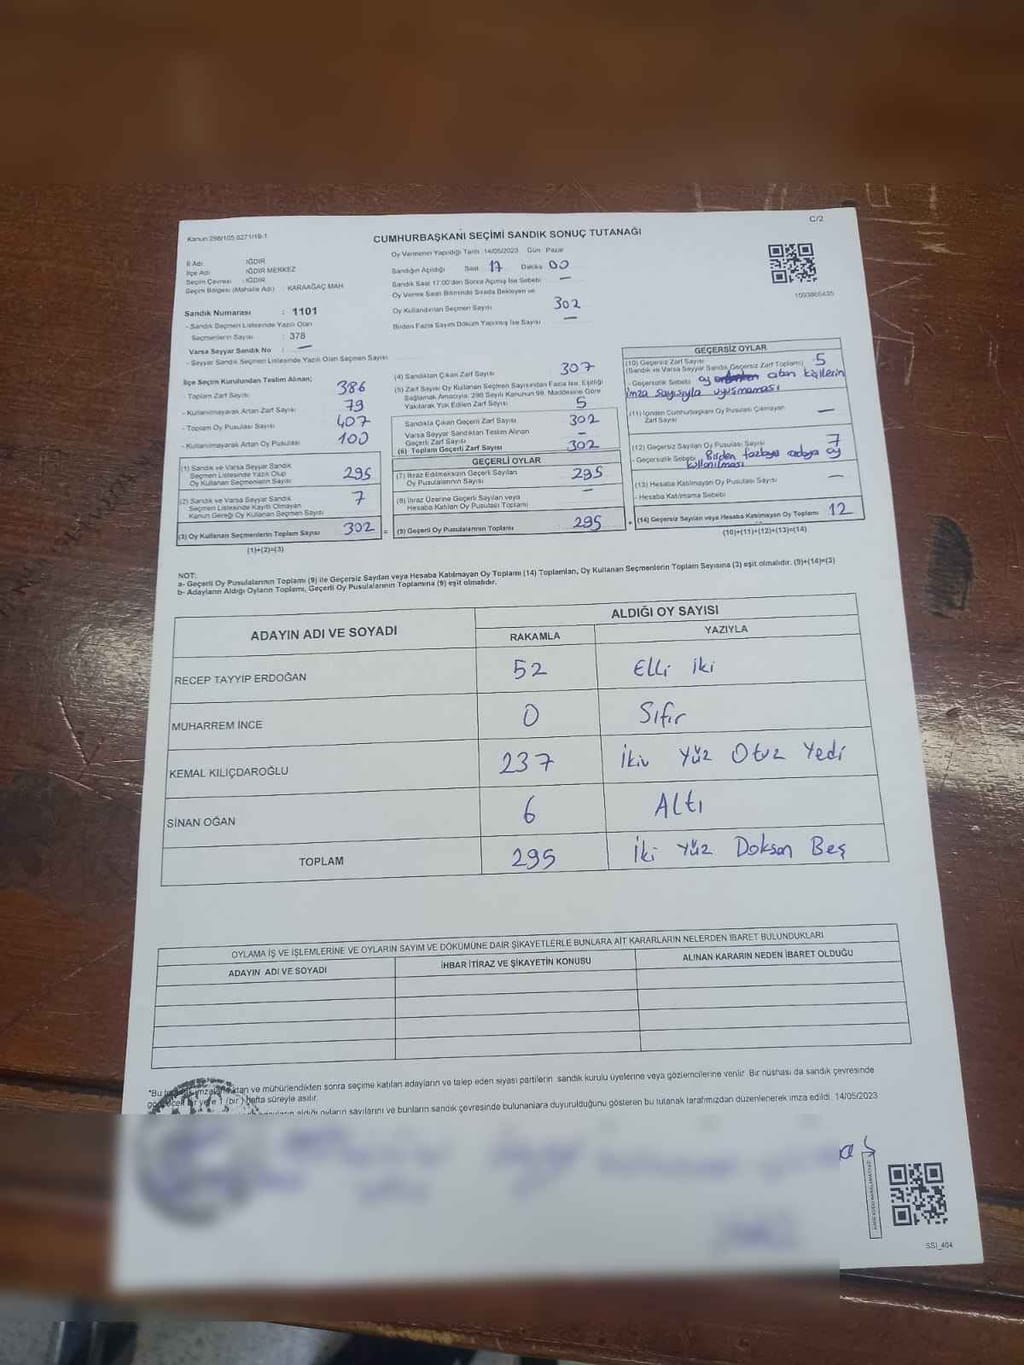 Kanun:298/105,6271/19-1
C/2
CUMHURBAŞKANI SEÇİMİ SANDIK SONUÇ TUTANAĞI
İl Adı : IĞDIR
İlçe Adı : IĞDIR MERKEZ
Seçim Çevresi : IĞDIR
Seçim Bölgesi (Mahalle Adı) : KARAAĞAÇ MAH.
Oy Vermenin Yapıldığı Tarih :14/05/2023 Gün :Pazar
Sandığın Açıldığı Saat 17 Dakika 00
Sandık Saat 17:00'den Sonra Açılmış İse Sebebi: —
Oy Verme Saati Bitiminde Sırada Bekleyen ve
Oy Kullandırılan Seçmen Sayısı 302
Birden Fazla Sayım Döküm Yapılmış İse Sayısı —
1093865435
Sandık Numarası : 1101
- Sandık Seçmen Listesinde Yazılı Olan
Seçmenlerin Sayısı : 378
Varsa Seyyar Sandık No : —
- Seyyar Sandık Seçmen Listesinde Yazılı Olan Seçmen Sayısı
İlçe Seçim Kurulundan Teslim Alınan;
- Toplam Zarf Sayısı 386
- Kullanılmayarak Artan Zarf Sayısı 79
- Toplam Oy Pusulası Sayısı 407
- Kullanılmayarak Artan Oy Pusulası 100
(1) Sandık ve Varsa Seyyar Sandık
Seçmen Listesinde Yazılı Olup
Oy Kullanan Seçmenlerin Sayısı 295
(2) Sandık ve Varsa Seyyar Sandık
Seçmen Listesinde Kayıtlı Olmayan
Kanun Gereği Oy Kullanan Seçmen Sayısı 7
(3) Oy Kullanan Seçmenlerin Toplam Sayısı 302 =
(1)+(2)=(3)
(4) Sandıktan Çıkan Zarf Sayısı 307
(5) Zarf Sayısı Oy Kullanan Seçmen Sayısından Fazla İse, Eşitliği
Sağlamak Amacıyla, 298 Sayılı Kanunun 98. Maddesine Göre
Yakılarak Yok Edilen Zarf Sayısı 5
Sandıkta Çıkan Geçerli Zarf Sayısı 302
Varsa Seyyar Sandıktan Teslim Alınan
Geçerli Zarf Sayısı —
(6) Toplam Geçerli Zarf Sayısı 302
GEÇERLİ OYLAR
(7) İtiraz Edilmeksizin Geçerli Sayılan
Oy Pusulasının Sayısı 295
(8) İtiraz Üzerine Geçerli Sayılan veya
Hesaba Katılan Oy Pusulası Toplamı —
(9) Geçerli Oy Pusulalarının Toplamı 295 +
GEÇERSİZ OYLAR
(10) Geçersiz Zarf Sayısı
(Sandık ve Varsa Seyyar Sandık Geçersiz Zarf Toplamı) 5
- Geçersizlik Sebebi oy atan kişilerin
imza sayısıyla uyuşmaması
(11) İçinden Cumhurbaşkanı Oy Pusulası Çıkmayan
Zarf Sayısı —
(12) Geçersiz Sayılan Oy Pusulası Sayısı 7
- Geçersizlik Sebebi Birden fazlaya adaya oy
kullanılması
(13) Hesaba Katılmayan Oy Pusulası Sayısı —
- Hesaba Katılmama Sebebi
(14) Geçersiz Sayılan veya Hesaba Katılmayan Oy Toplamı 12
(10)+(11)+(12)+(13)=(14)
NOT:
a- Geçerli Oy Pusulalarının Toplamı (9) ile Geçersiz Sayılan veya Hesaba Katılmayan Oy Toplamı (14) Toplamları, Oy Kullanan Seçmenlerin Toplam Sayısına (3) eşit olmalıdır. (9)+(14)=(3)
b- Adayların Aldığı Oyların Toplamı, Geçerli Oy Pusulalarının Toplamına (9) eşit olmalıdır.
ADAYIN ADI VE SOYADI
ALDIĞI OY SAYISI
RAKAMLA YAZIYLA
RECEP TAYYIP ERDOĞAN 52 Elli iki
MUHARREM İNCE 0 Sıfır
KEMAL KILIÇDAROĞLU 237 İkiv Yüz Otuz Yedi
SİNAN OĞAN 6 Altı
TOPLAM 295 İki Yüz Doksan Beş
OYLAMA İŞ VE İŞLEMLERİNE VE OYLARIN SAYIM VE DÖKÜMÜNE DAİR ŞİKAYETLERLE BUNLARA AİT KARARLARIN NELERDEN İBARET BULUNDUKLARI
ADAYIN ADI VE SOYADI İHBAR İTİRAZ VE ŞİKAYETİN KONUSU ALINAN KARARIN NEDEN İBARET OLDUĞU
ve mühürlendikten sonra seçime katılan adayların ve talep eden siyasi partilerin sandık kurulu üyelerine veya gözlemcilerine verilir. Bir nüshası da sandık çevresinde
1 (bir) hafta süreyle asılır.
aldığı oyların sayılarını ve bunların sandık çevresinde bulunanlara duyurulduğunu gösteren bu tutanak tarafımızdan düzenlenerek imza edildi. 14/05/2023
SSI_404